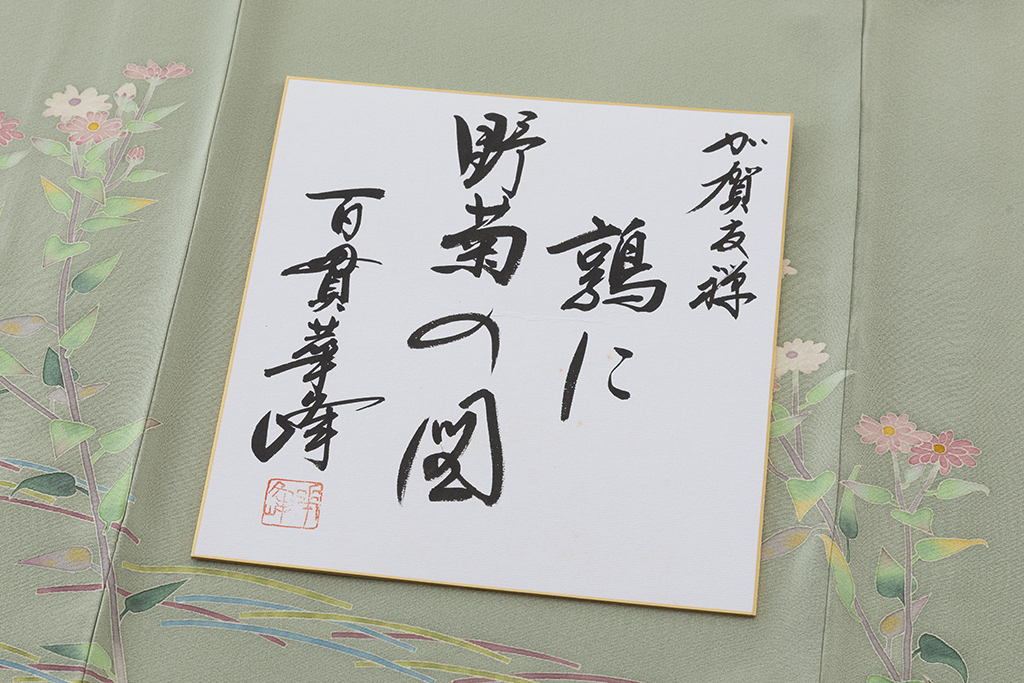 加賀友禅
鶉に
野菊の図
百貫華峰
華峰